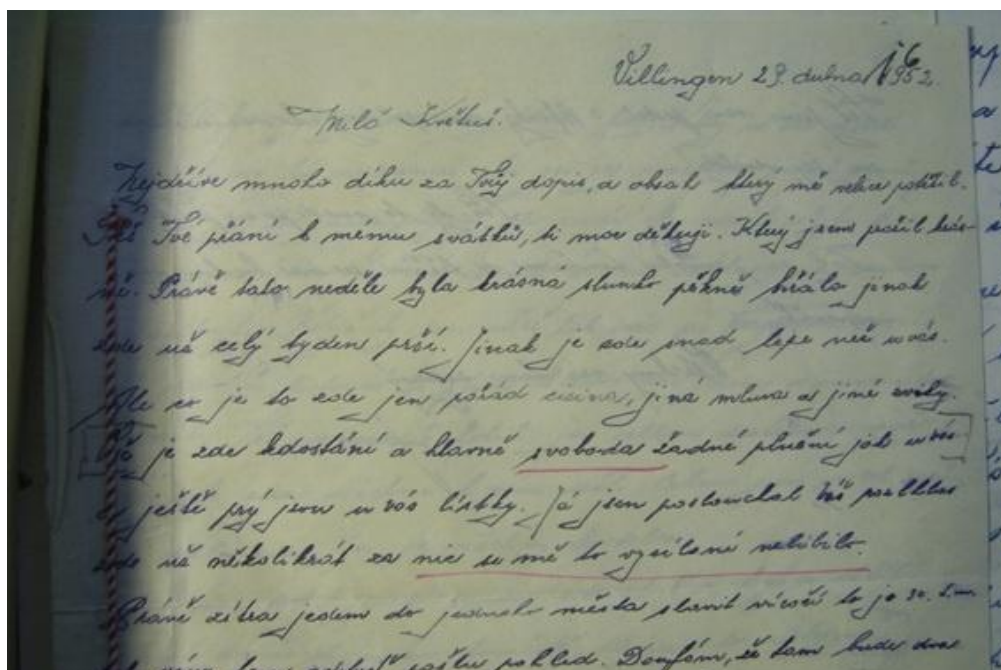 Villingen 29. dubna 1952.
6
Milá Květuš.
Nejdříve mnoho díku za Tvůj dopis, a obsah který mě velice potěšil.
Tvé přání k mému svátků, ti moc děkuji. Který jsem prožil krás-
ně. Právě tato neděle byla krásná slunko pěkně hřálo jinak
zde už celý tyden prší. Jinak je zde snad lepe než u vás.
Ale co je to zde jen pořád cizina, jiná mluva a jiné zvyky.
je zde kdostání a hlavně svoboda žadné plnění jak u vás
ještě prý jsou u vás lístky. Já jsem poslouchal váš rozhlas
zde už několikrát za nic se mě to vysílaní nelíbilo.
Právě zítra jedem do jednoho města slavit výročí to je 30. 
pohled. Doufám, že tam bude dva